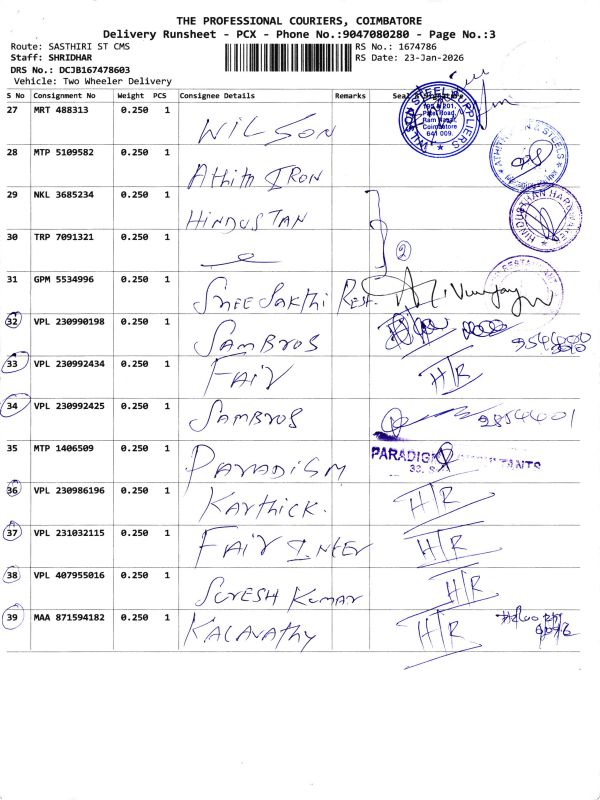 THE PROFESSIONAL COURIERS, COIMBATORE
Delivery Runsheet - PCX - Phone No.:9047080280 - Page No.:3
Route: SASTHIRI ST CMS
RS No.: 1674786
Staff: SHRIDHAR
RS Date: 23-Jan-2026
DRS No.: DCJB167478603
Vehicle: Two Wheeler Delivery
S No Consignment No Weight PCS Consignee Details Remarks
27 MRT 488313 0.250 1 WILSON
WILSON STEEL SUPPLIERS
Ram Nagar,
Coimbatore
641 009.
28 MTP 5109582 0.250 1 Athith IRON
29 NKL 3685234 0.250 1 HINDUSTAN
HINDUSTHAN HARDWARES
30 TRP 7091321 0.250 1
2
31 GPM 5534996 0.250 1 Sree Sakthi Rest.
32 VPL 230990198 0.250 1 SAMBROS
33 VPL 230992434 0.250 1 FAIR H/R
34 VPL 230992425 0.250 1 SAMBROS
35 MTP 1406509 0.250 1 PARADISM
PARADIGM
36 VPL 230986196 0.250 1 KARTHICK. H/R
37 VPL 231032115 0.250 1 FAIR INTER H/R
38 VPL 407955016 0.250 1 SURESH KUMAR H/R
39 MAA 871594182 0.250 1 KALAVATHY H/R